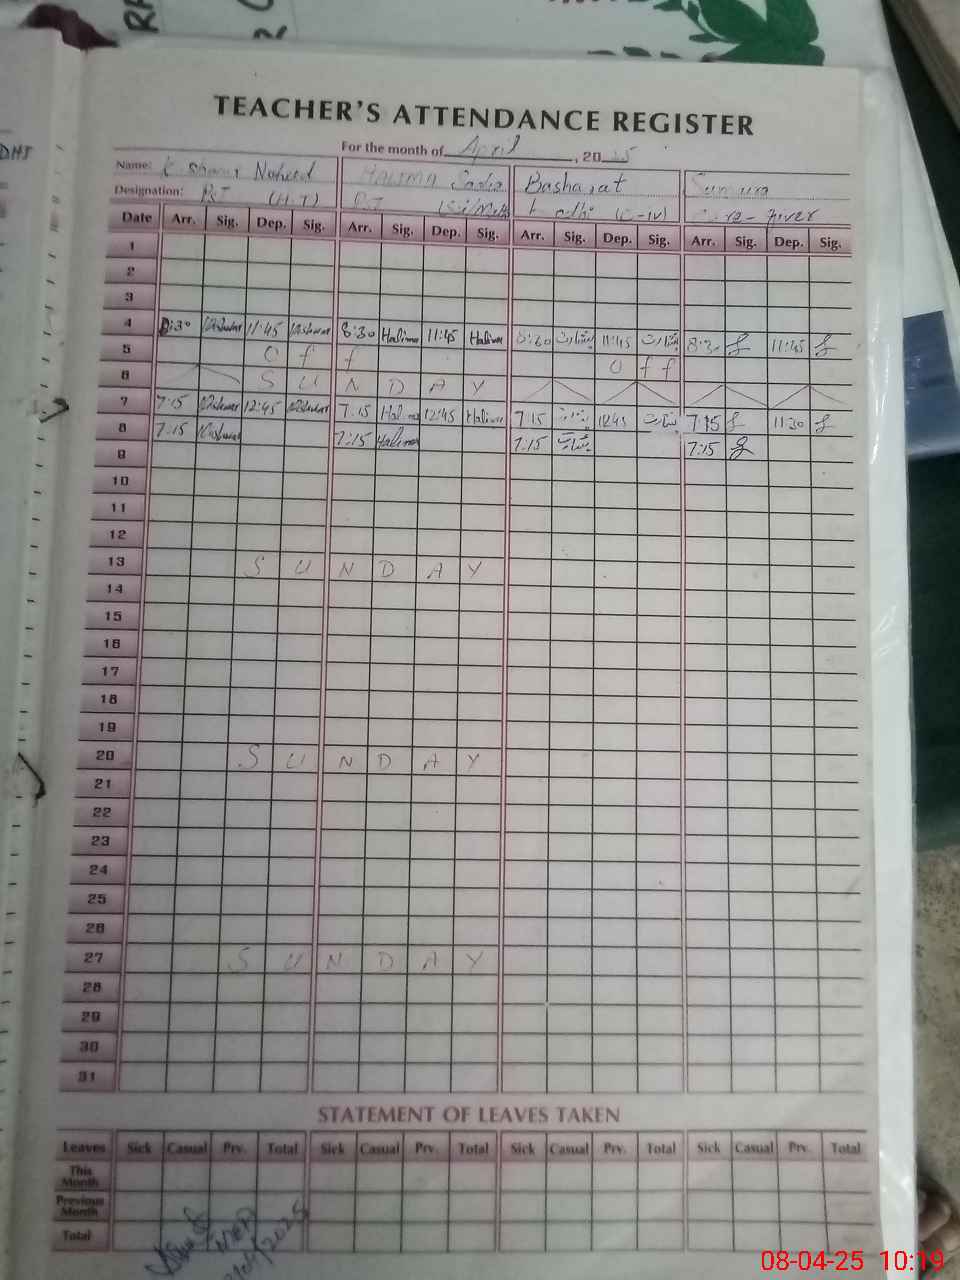 TEACHER'S ATTENDANCE REGISTER
For the month of April, 2025
Name: Kishwar Naheed HALIMA Sadia Basharat Sumaira
Designation: PST (H.T) PST (Sci/Math) Ladhi (C-IV) Care-giver
Date Arr. Sig. Dep. Sig. Arr. Sig. Dep. Sig. Arr. Sig. Dep. Sig. Arr. Sig. Dep. Sig.
1
2
3
4 8:30 Kishwar 11:45 Kishwar 8:30 Halima 11:45 Halima 8:30 بشارت 11:45 بشارت 8:30 11:45
5 O f f O f f
6 S U N D A Y
7 7:15 Kishwar 12:45 Kishwar 7:15 Halima 12:45 Halima 7:15 بشارت 12:45 بشارت 7:15 11:30
8 7:15 Kishwar 7:15 Halima 7:15 بشارت 7:15
9
10
11
12
13 S U N D A Y
14
15
16
17
18
19
20 S U N D A Y
21
22
23
24
25
26
27 S U N D A Y
28
29
30
31
STATEMENT OF LEAVES TAKEN
Leaves Sick Casual Prv. Total Sick Casual Prv. Total Sick Casual Prv. Total Sick Casual Prv. Total
This Month
Previous Month
Total
MEA
08-04-25 10:19